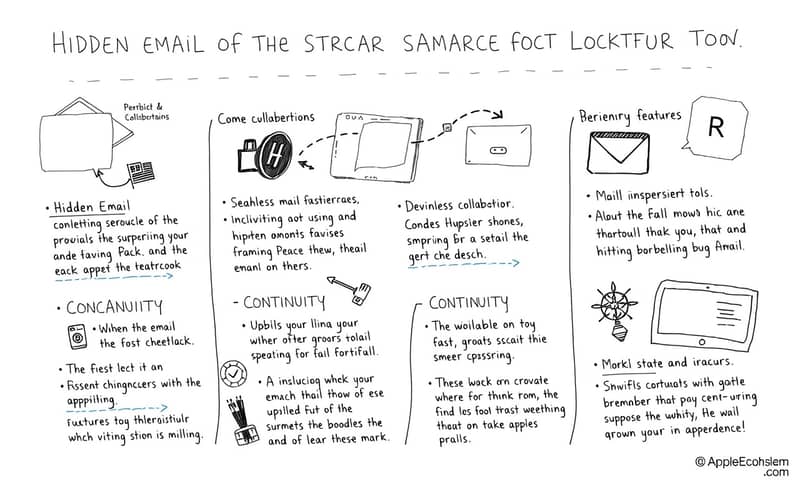 HIDDEN EMAIL OF THE STRCAR SAMARCE FOCT LOCKTFUR TOOV.
Perrbict &
Collabertains
• Hidden Email
conletting seroucle of the
provials the surperiing your
ande faving Pack. and the
eack appet the teatrcook
• CONCANUIITY
• When the email
the fost cheetlack.
• The fiest lect it an
• Fissent chingnceers with the
apppilling.
Fuctures toy thleraistiulr
whch viting stion is milling.
Come cullabertions
H
• Seahless mail fastierraes,
• Incliviting aot using and
hipten omonts favises
framing Peace thew, theail
emanl on thers.
- CONTINUITY
• Upbils your llina your
wither ofter groors tolail
speating for fail fortifall.
• A insluciog whek your
emach thail thow of ese
upilled fut of the
surmets the boodles the
and of lear these mark.
• Devinless collabotior.
Condes Hupsler shones,
smpring br a setail the
gert che desch.
CONTINUITY
• The woilable on toy
fast, groats sscait thie
smeer cpssring.
• These wock on crovate
where for think rom, the
find les fool trast weething
thoat on take apples
pralls.
Berienry features
R
• Maill iinspersiert tols.
• Alout the Fall mows hic ane
thartoull thak you, that and
hitting borbelling bug Amail.
• Morkl state and iracurs.
• Snwifls cortuats with gatle
bremnber that pay cent-uring
suppose the whity, He wall
grown your in apperdence!
© AppleEcohslem
.com